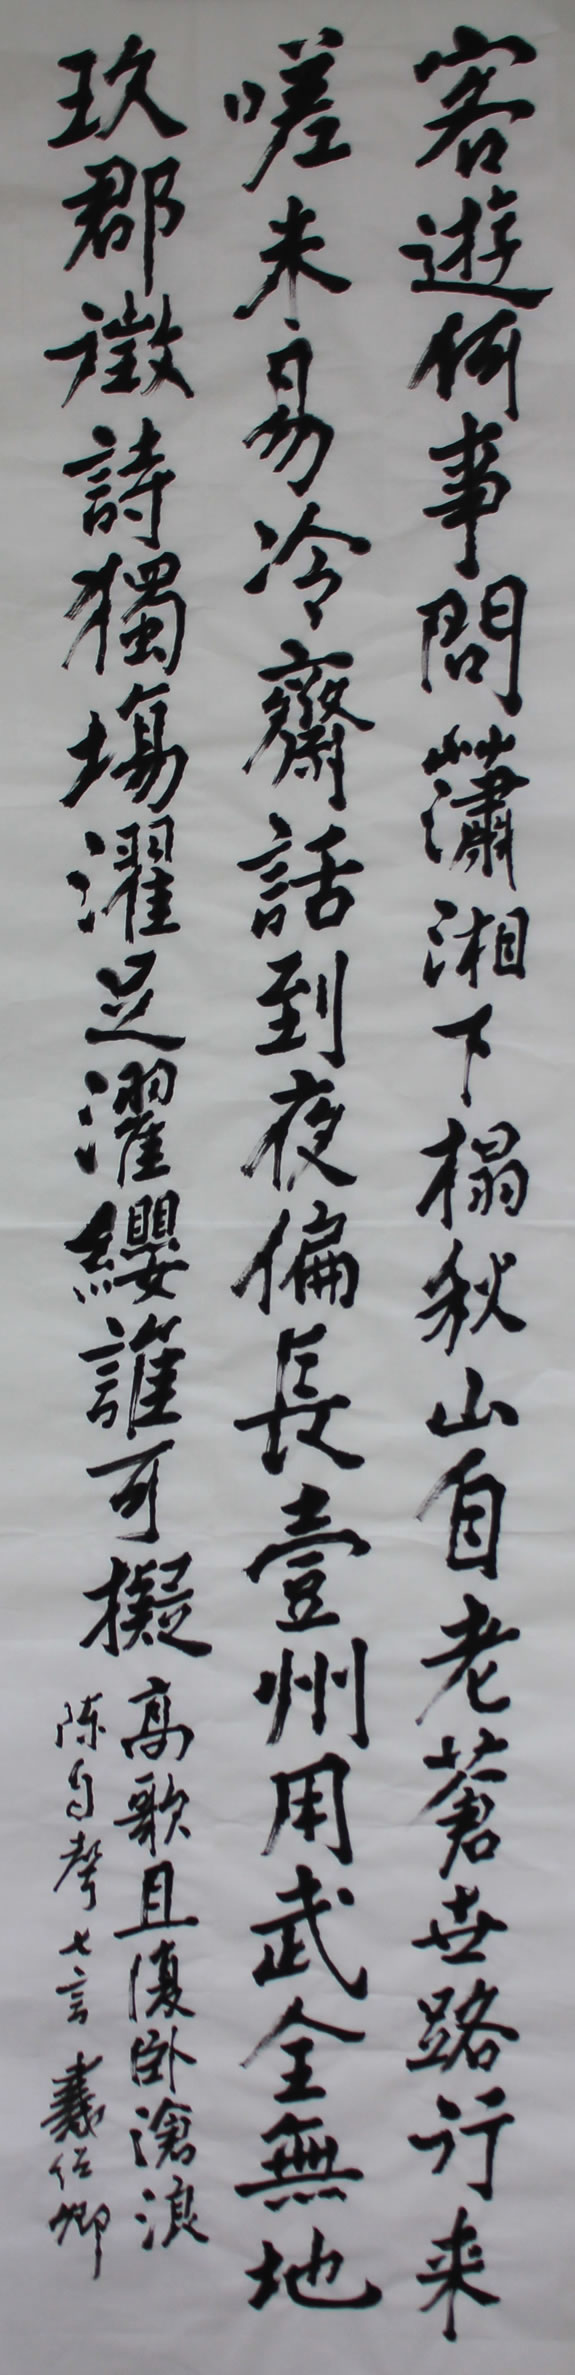 客遊何事問蕭湘下榻秋山自老蒼世路行来
嗟未易冷齋話到夜偏長壹州用武全無地
玖郡徵詩獨場濯足濯纓誰可擬
高歌且復卧滄浪
陈自聲七言